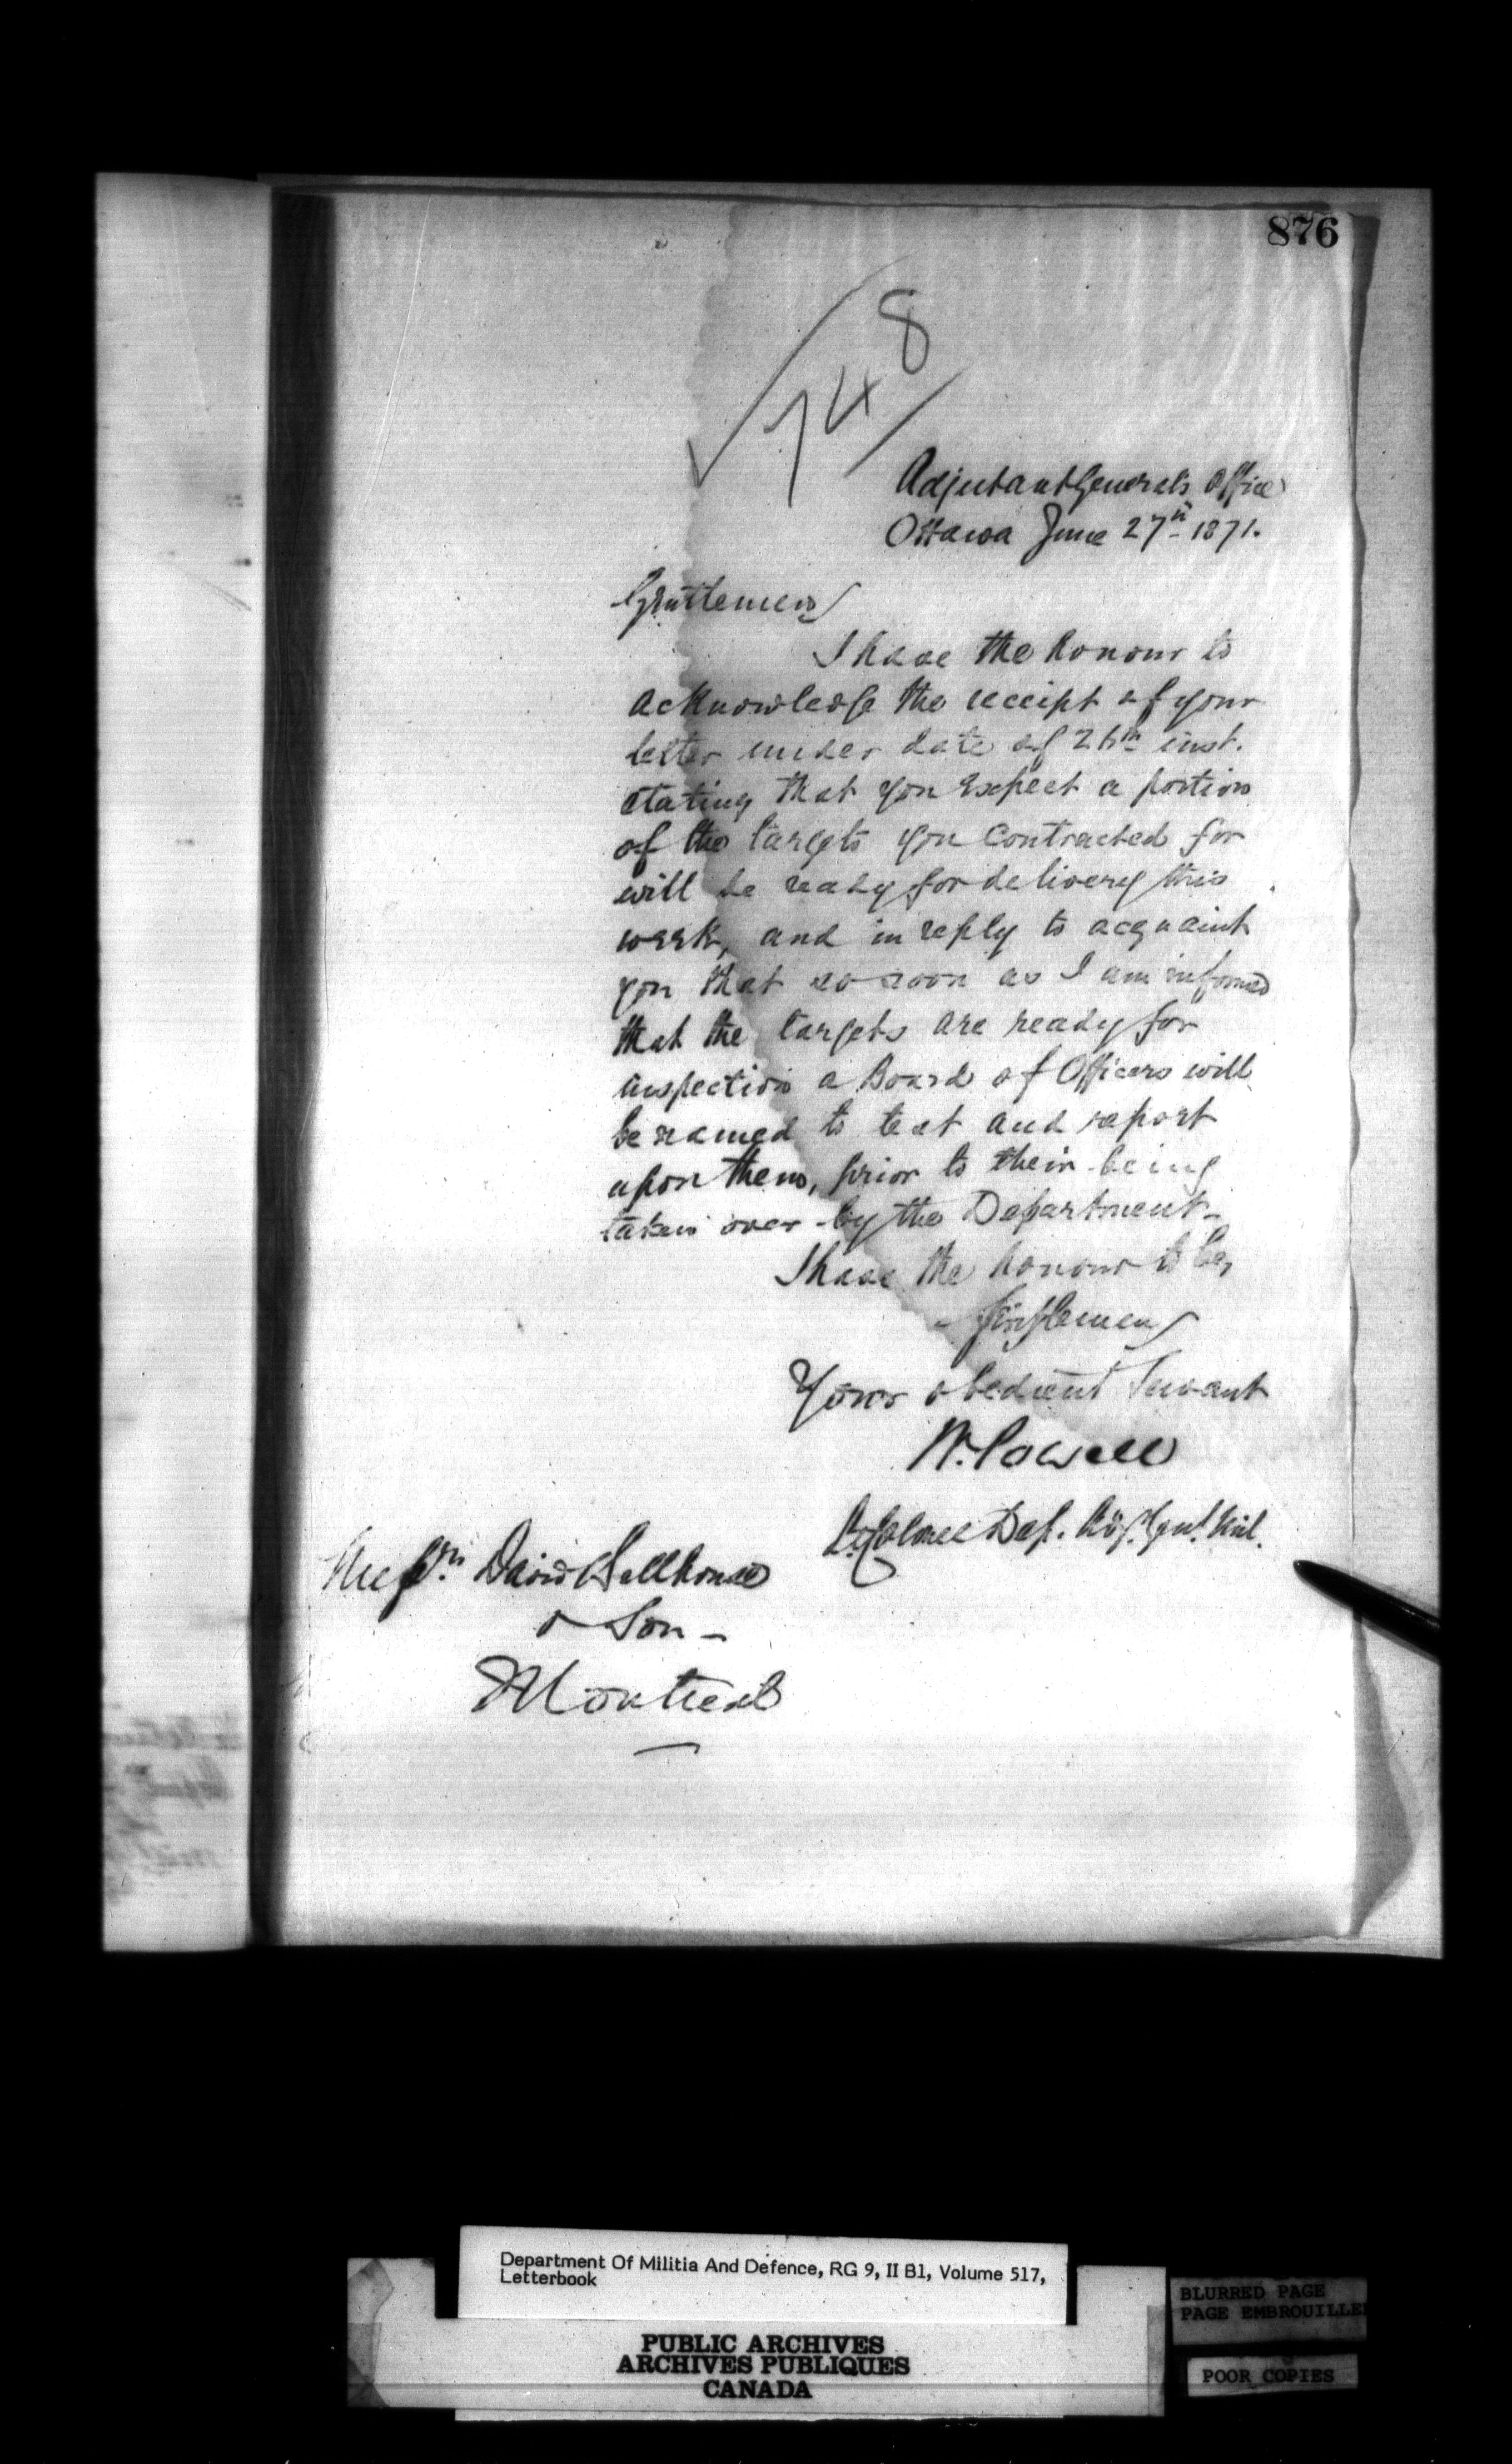 876
748
Adjutant General's Office
Ottawa June 27th 1871.
Gentlemen
I have the honour to
acknowledge the receipt of your
letter under date of 26th inst.
stating that you expect a portion
of the targets you contracted for
will be ready for delivery this
week, and in reply to acquaint
you that so soon as I am informed
that the targets are ready for
inspection a Board of Officers will
be named to test and report
upon them, prior to their being
taken over by the Department -
I have the honour to be,
Gentlemen
Your obedient Servant
W. Powell
Lt. Colonel Dep. Adj. Genl. Mil.
Messrs. David Bellhouse
& Son -
Montreal
Department Of Militia And Defence, RG 9, II B1, Volume 517,
Letterbook
PUBLIC ARCHIVES
ARCHIVES PUBLIQUES
CANADA
BLURRED PAGE
PAGE EMBROUILLEE
POOR COPIES